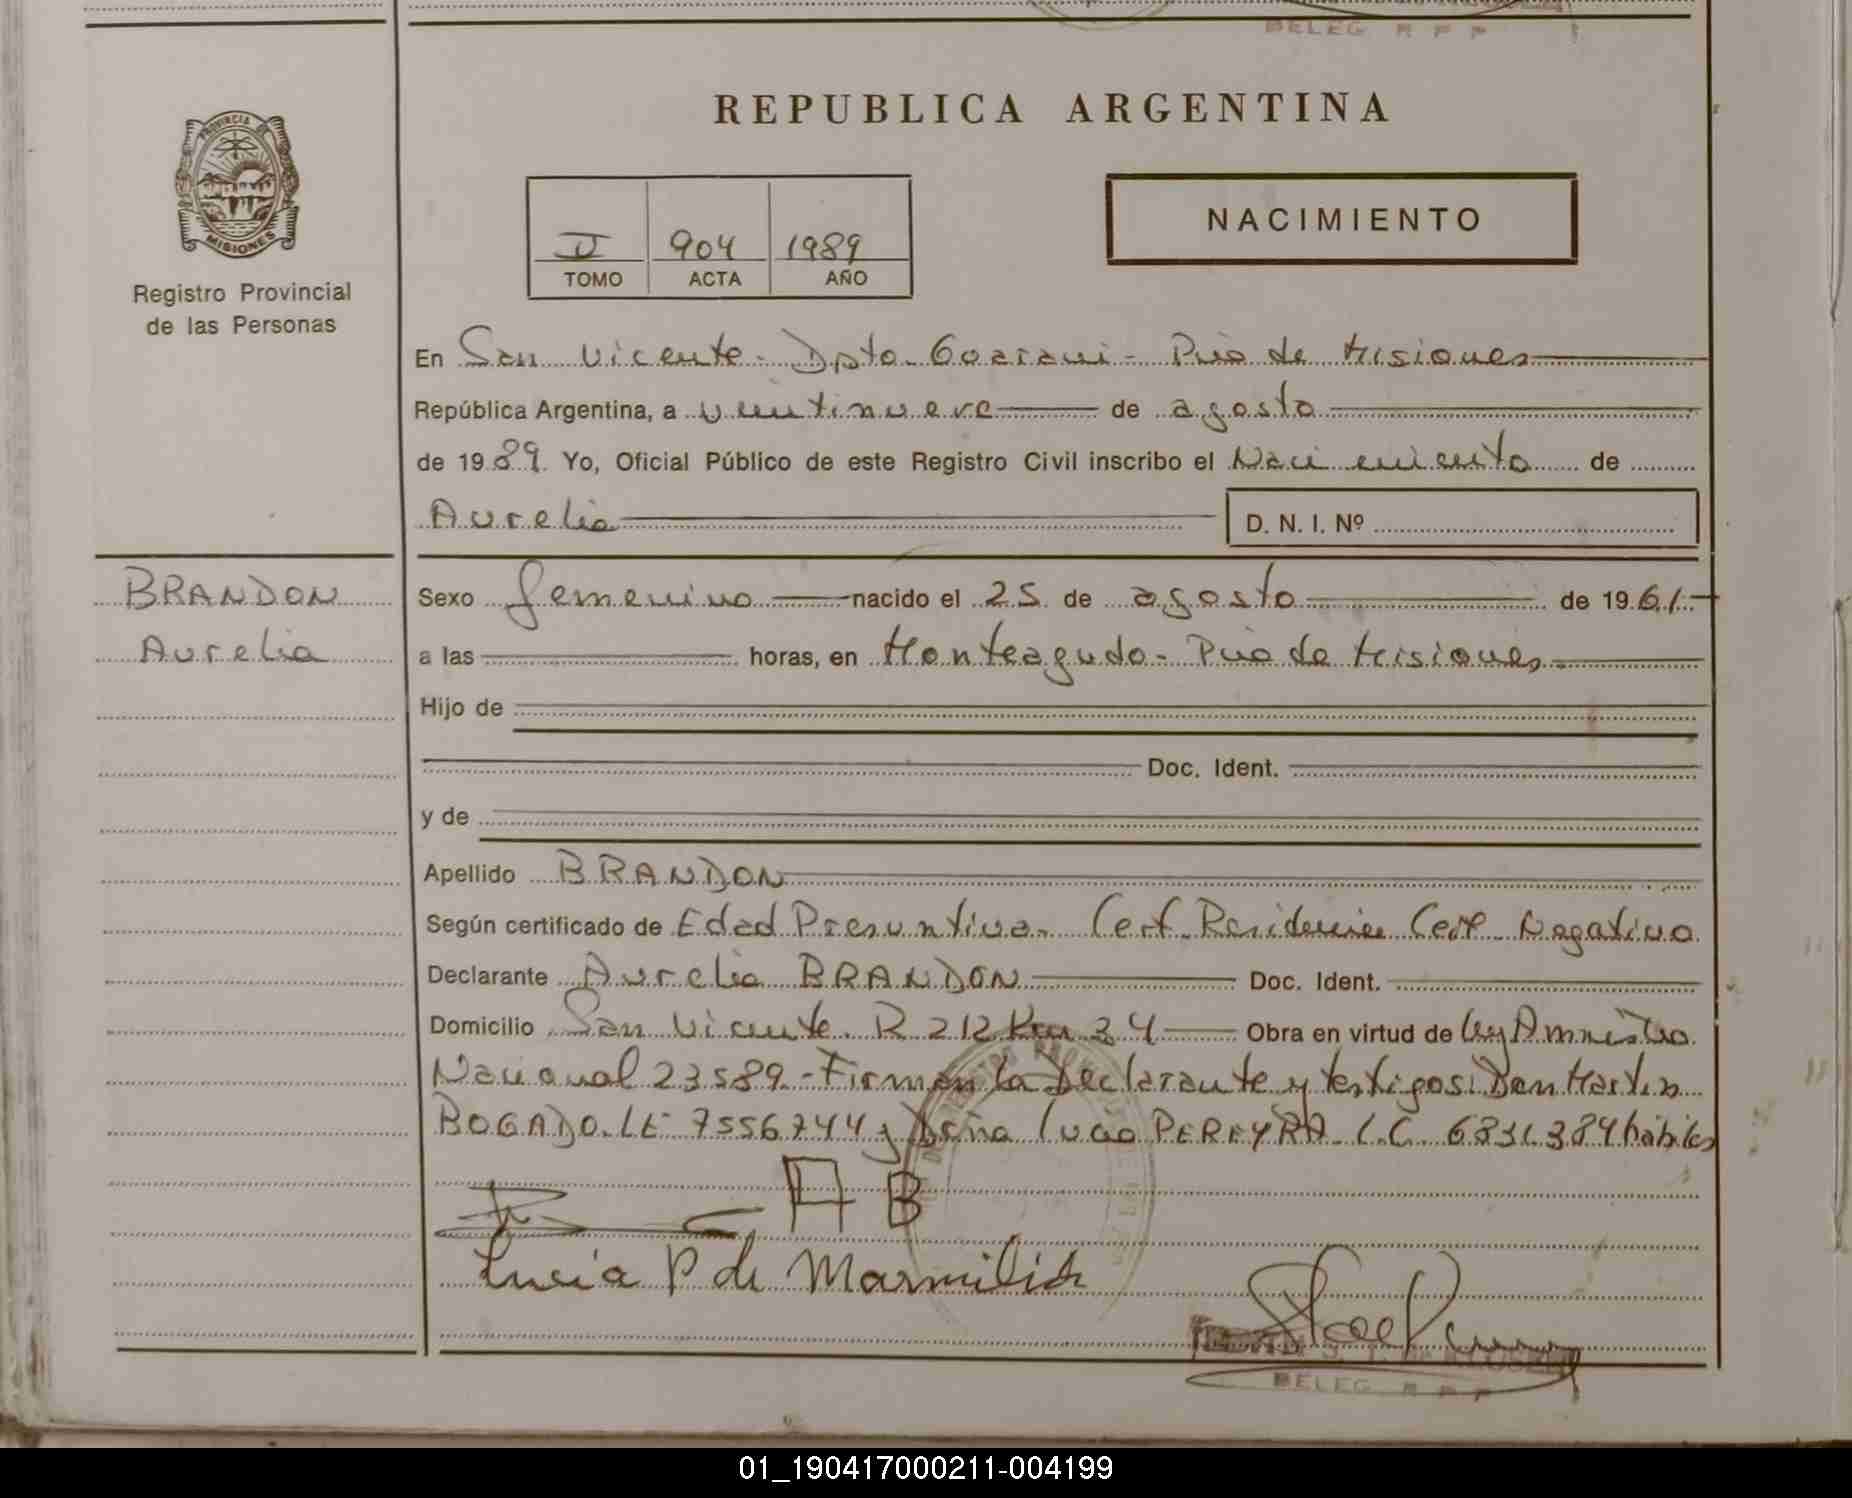 BELEG R P P
REPUBLICA ARGENTINA
PROVINCIA DE
MISIONES
Registro Provincial
de las Personas
II 904 1989
TOMO ACTA AÑO
NACIMIENTO
En San Vicente - Dpto. Guarani - Pcia de Misiones
República Argentina, a veintinueve de agosto
de 1989. Yo, Oficial Público de este Registro Civil inscribo el Nacimiento de
Aurelia D. N. I. Nº
BRANDON
Aurelia
Sexo femenino nacido el 25 de agosto de 1961
a las horas, en Monteagudo - Pcia de Misiones
Hijo de
Doc. Ident.
y de
Apellido BRANDON
Según certificado de Edad Presuntiva. Cert. Residencia Cert. Negativo
Declarante Aurelia BRANDON Doc. Ident.
Domicilio San Vicente. R 212 Km 34 Obra en virtud de Ley Amnistia
Nacional 23589.- Firman la Declarante y testigos: Don Martin
BOGADO. LE 7556744 y Doña Lucia PEREYRA L.C. 6831384 hábiles
A B
Lucía P de Marmilich
BELEG R P P
01_190417000211-004199